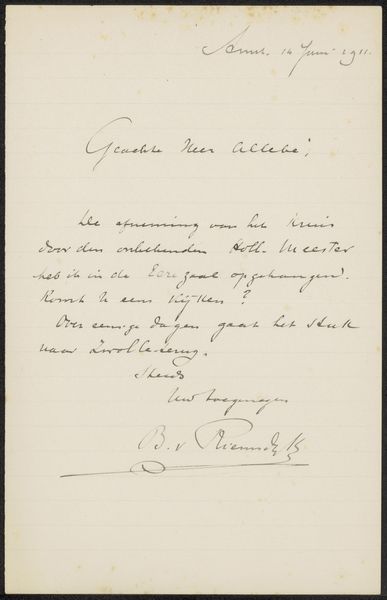 Amst. 14 Juni 1911.
Geachte Heer Allebé,
De afneming van het Kruis
door den onbekenden Holl. Meester
heb ik in de Eerezaal opgehangen.
Komt U eens kijken?
Over eenige dagen gaat het stuk
naar Zwolle terug.
Steeds
Uw toegenegen
B. v Riemsdijk